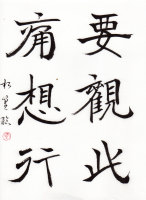 要觀此
痛想行